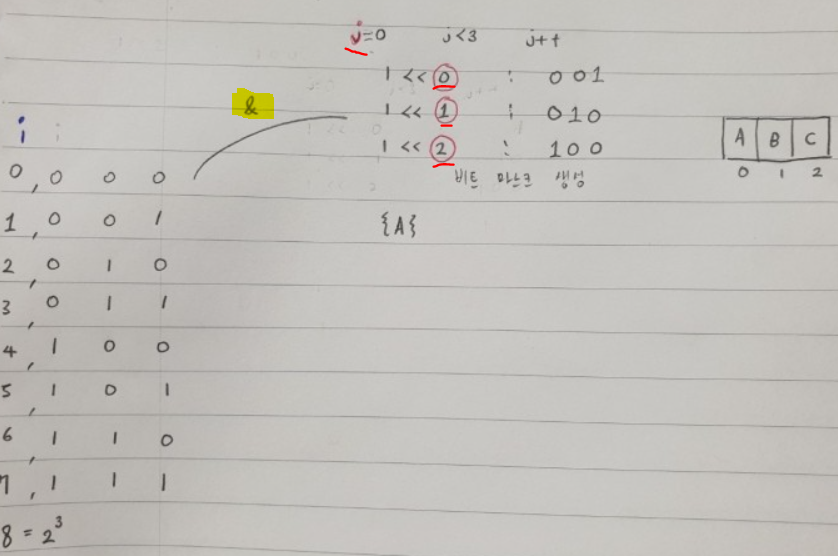 j=0 j<3 j++
1 << 0 : 001
&
1 << 1 : 010
1 << 2 : 100
A B C
0 1 2
비트 마스크 생성
{A}
i
0, 0 0 0
1, 0 0 1
2, 0 1 0
3, 0 1 1
4, 1 0 0
5, 1 0 1
6, 1 1 0
7, 1 1 1
8 = 2³